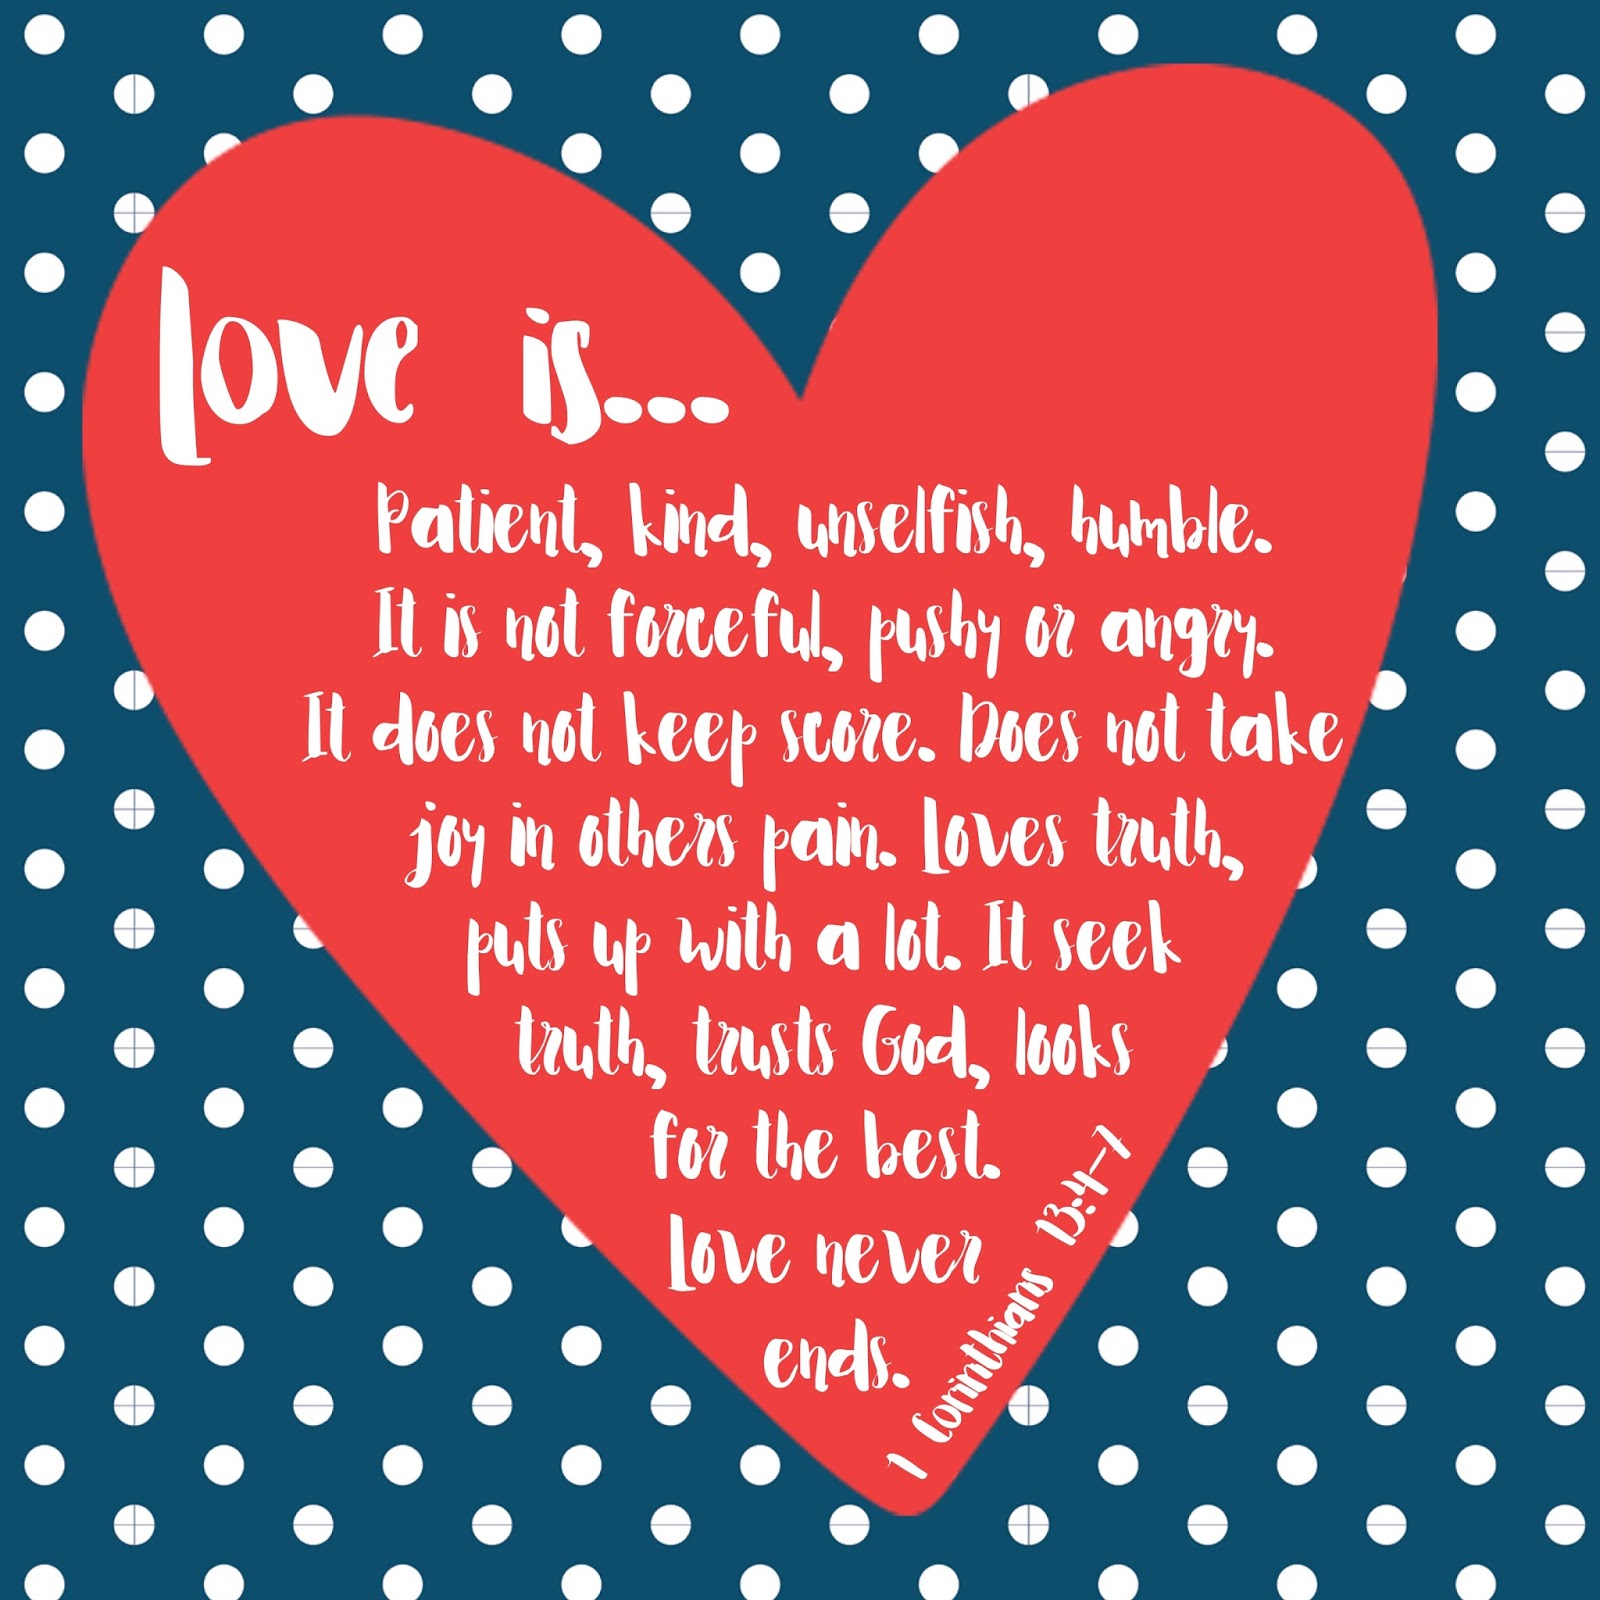 Love is...
Patient, kind, unselfish, humble.
It is not forceful, pushy or angry.
It does not keep score. Does not take
joy in others pain. Loves truth,
puts up with a lot. It seek
truth, trusts God, looks
for the best.
Love never
ends.
1 Corinthians 13:4-7